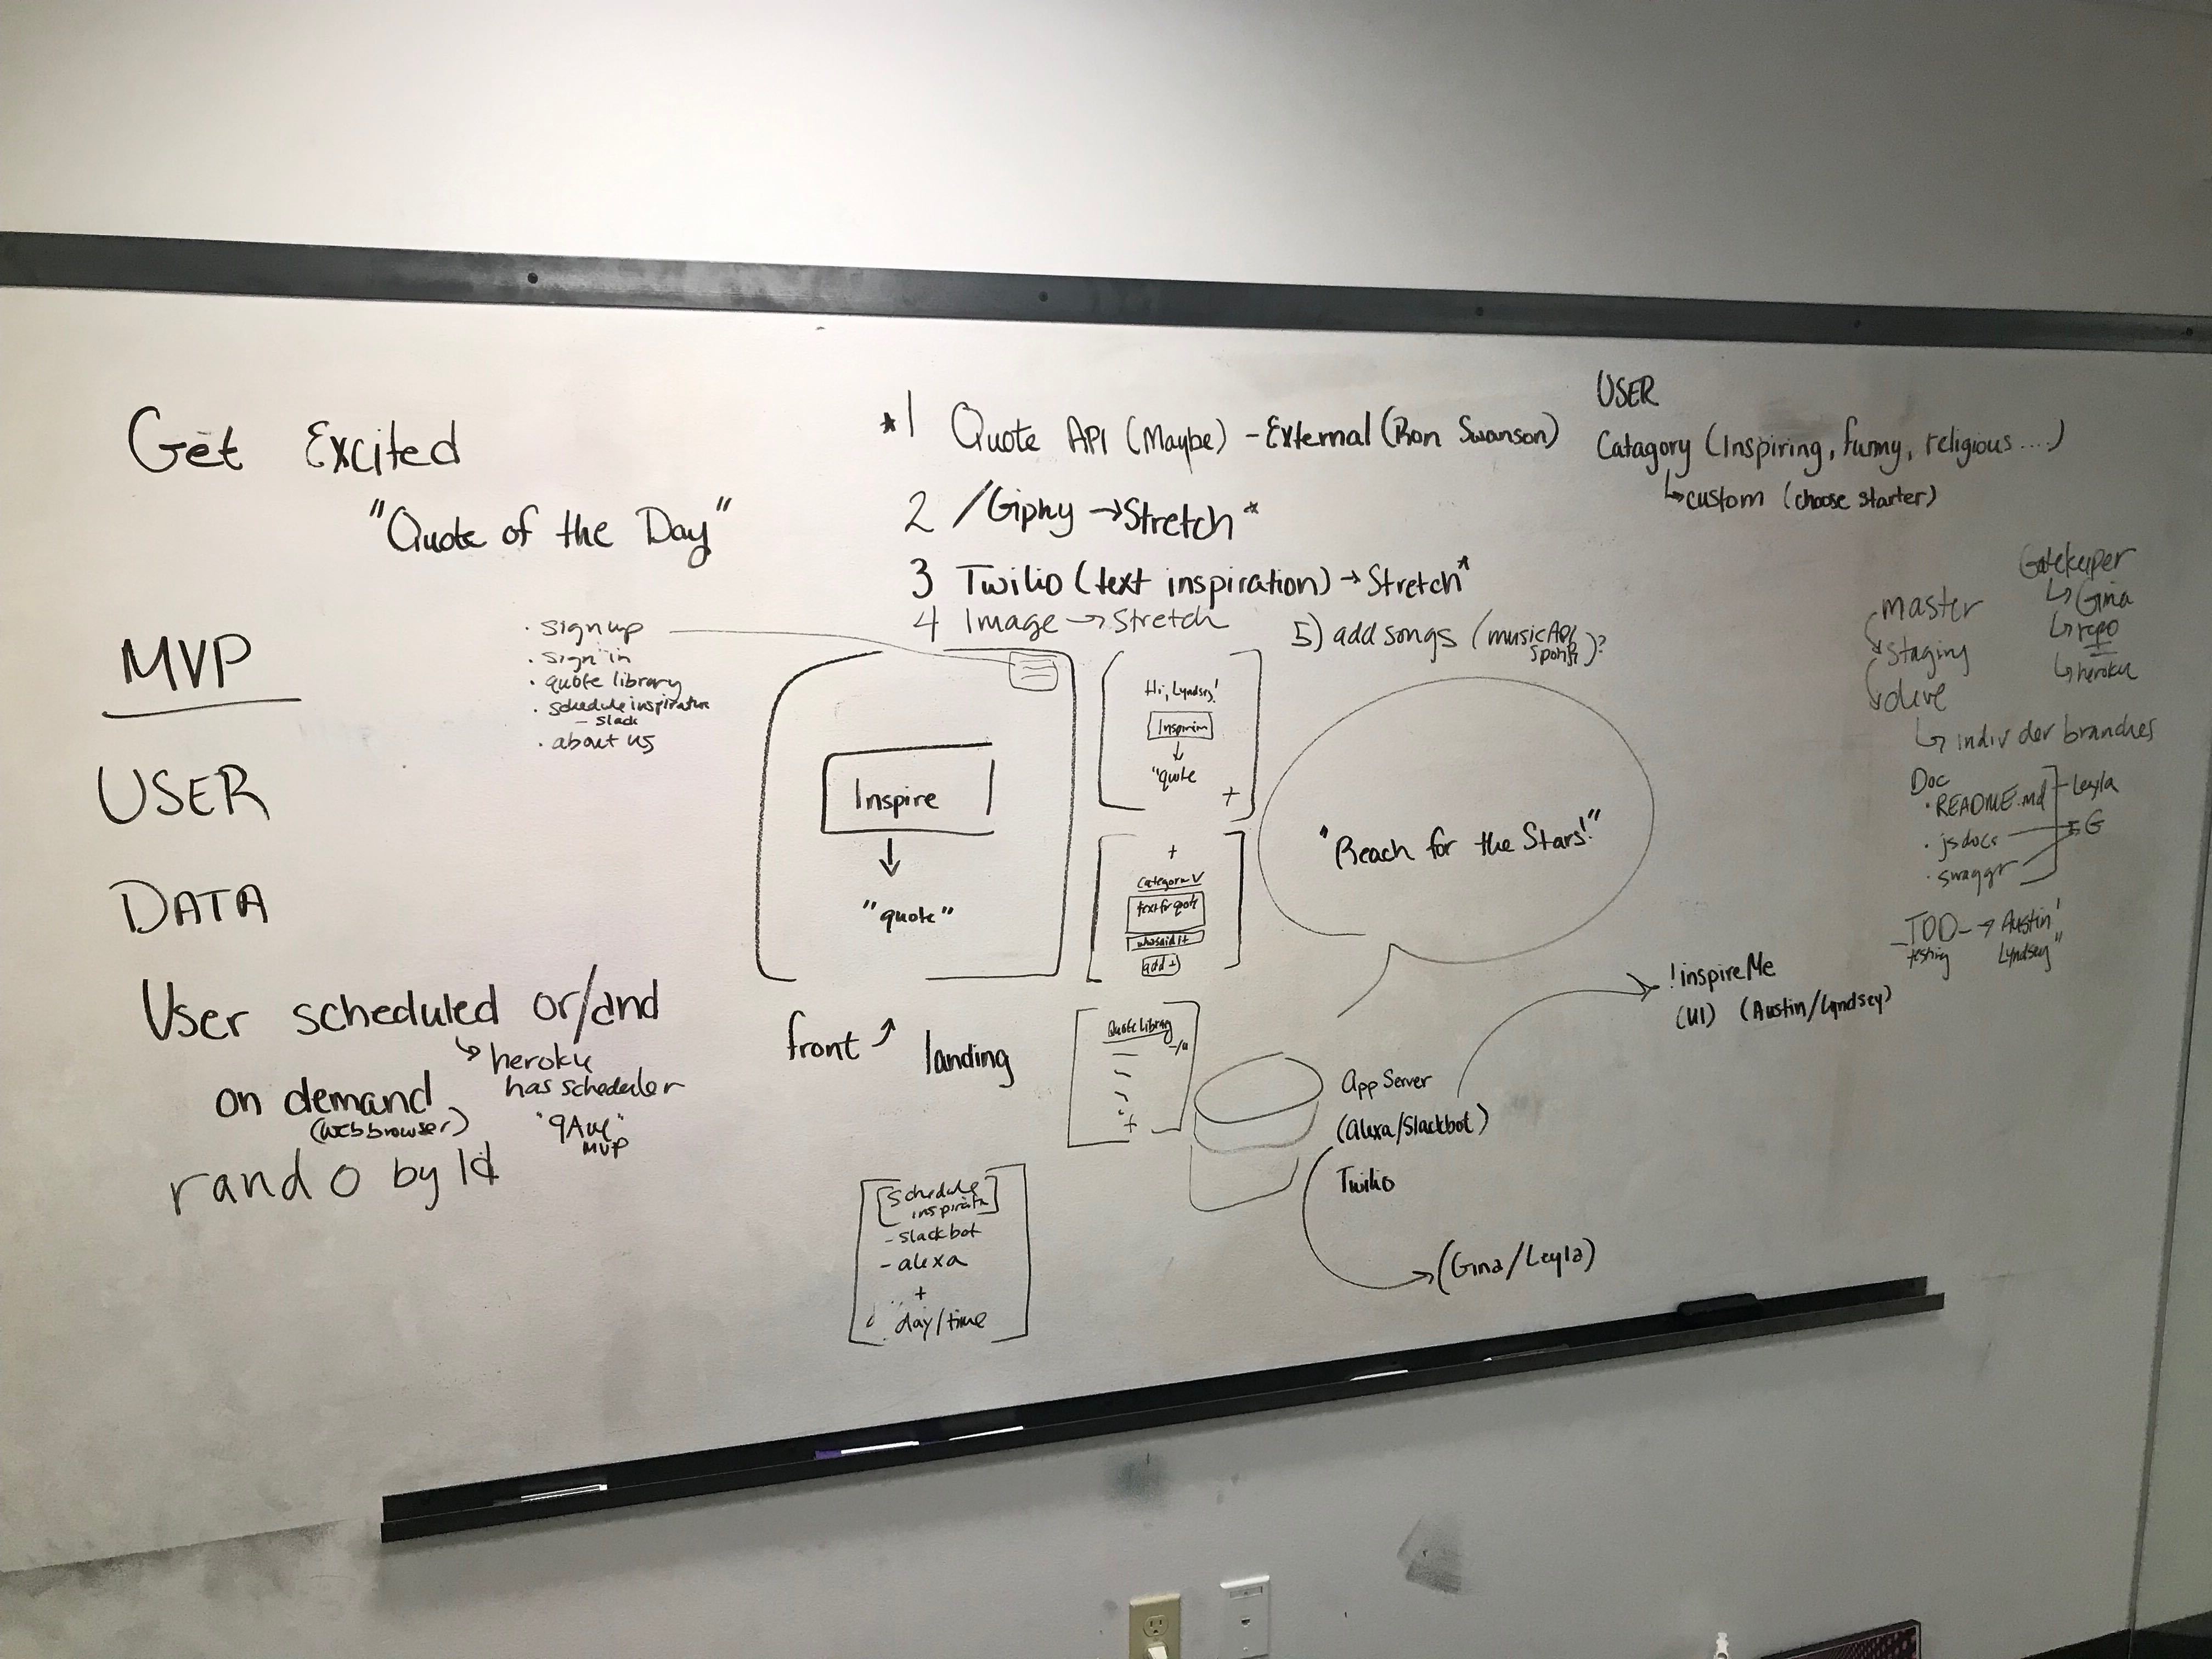 Get Excited
"Quote of the Day"
MVP
USER
DATA
User scheduled or/and
↳ heroku
has scheduler
on demand
(web browser)
MVP
rand o by Id
· sign up
· sign in
· quote library
· schedule inspiration
- slack
· about us
*1 Quote API (Maybe) - External (Ron Swanson)
2 /Giphy → Stretch*
3 Twilio (text inspiration) → Stretch*
4 Image → Stretch
5) add songs (music API
)?
Inspire
"quote"
front
landing
Hi, Lyndsey!
"quote
+
+
category
text for quote
who said it
add +
Quote Library
+
schedule
- slackbot
- alexa
+
day/time
"Reach for the Stars!"
App Server
(Alexa/Slackbot)
Twilio
(Gina/Leyla)
!inspireMe
(UI) (Austin/Lyndsey)
USER
Catagory (Inspiring, funny, religious ....)
↳ custom (choose starter)
master
staging
↳ indiv dev branches
Gatekeeper
↳ Gina
↳ repo
↳ heroku
Doc
· README.md - Leyla
· jsdocs G
· swaggr
testing
→ Austin
Lyndsey